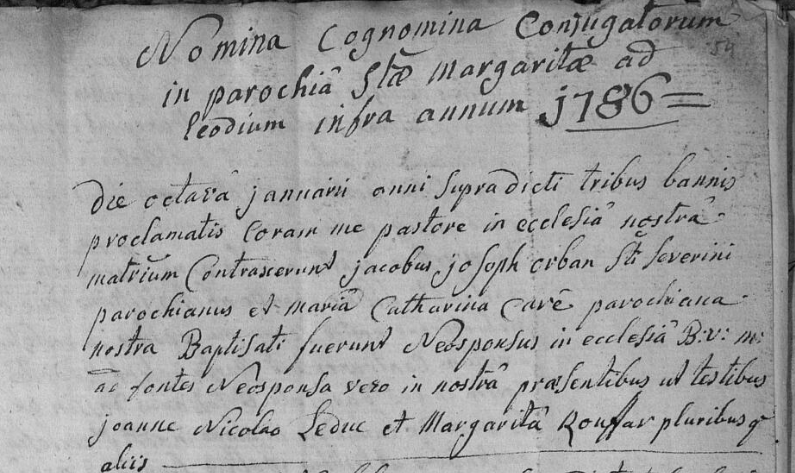 Nomina Cognomina Conjugatorum
54
in parochiâ Stæ Margaritæ ad
leodium infra annum 1786=
Die octavâ januarii anni supradicti tribus bannis
proclamatis Coram me pastore in ecclesiâ nostrâ
matrium Contraxerunt jacobus joseph orban Sti Severini
parochianus et mariâ Catharina Caré parochiana
nostra Baptisati fuerunt Neosponsus in ecclesiâ B: v: m:
ad fontes Neosponsa vero in nostrâ præsentibus ut testibus
joanne Nicolao Leduc et Margaritâ pluribusq
aliis